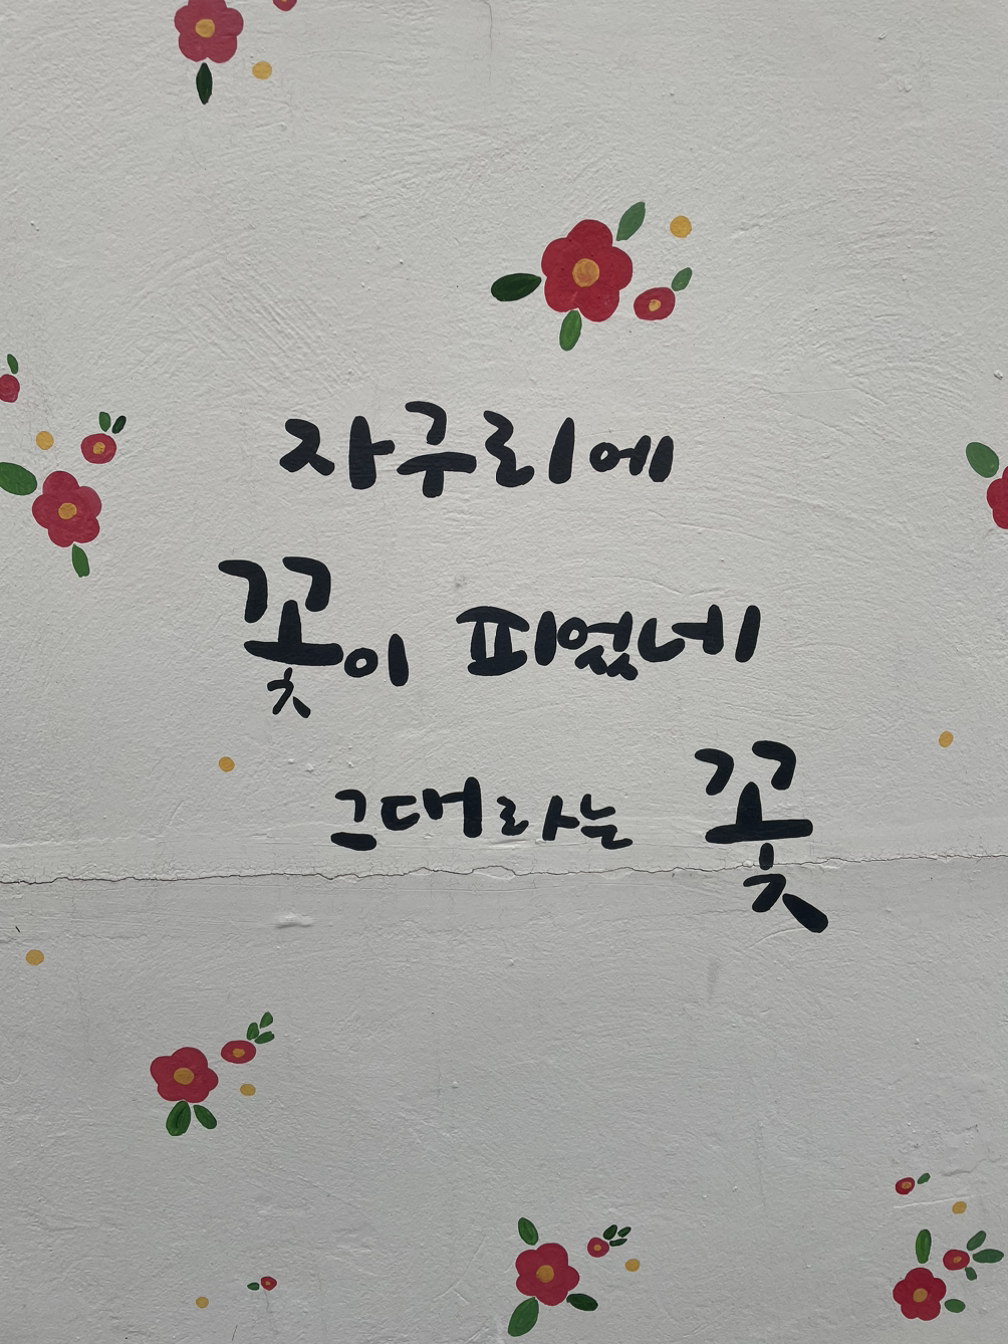 자구리에
꽃이 피었네
그대라는 꽃